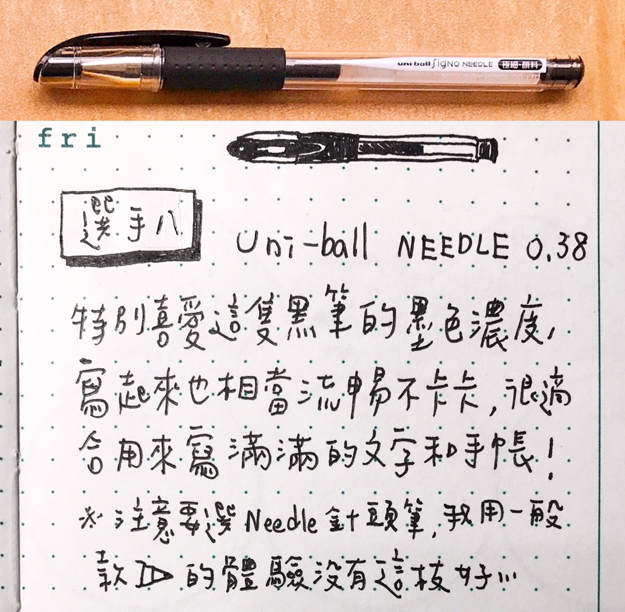 uni-ball SigNO NEEDLE 極細・顔料
fri
選手八
uni-ball NEEDLE 0.38
特別喜愛這隻黑筆的墨色濃度,
寫起來也相當流暢不卡卡,很適
合用來寫滿滿的文字和手帳!
※注意要選Needle針頭筆,我用一般
款的體驗沒有這枝好…